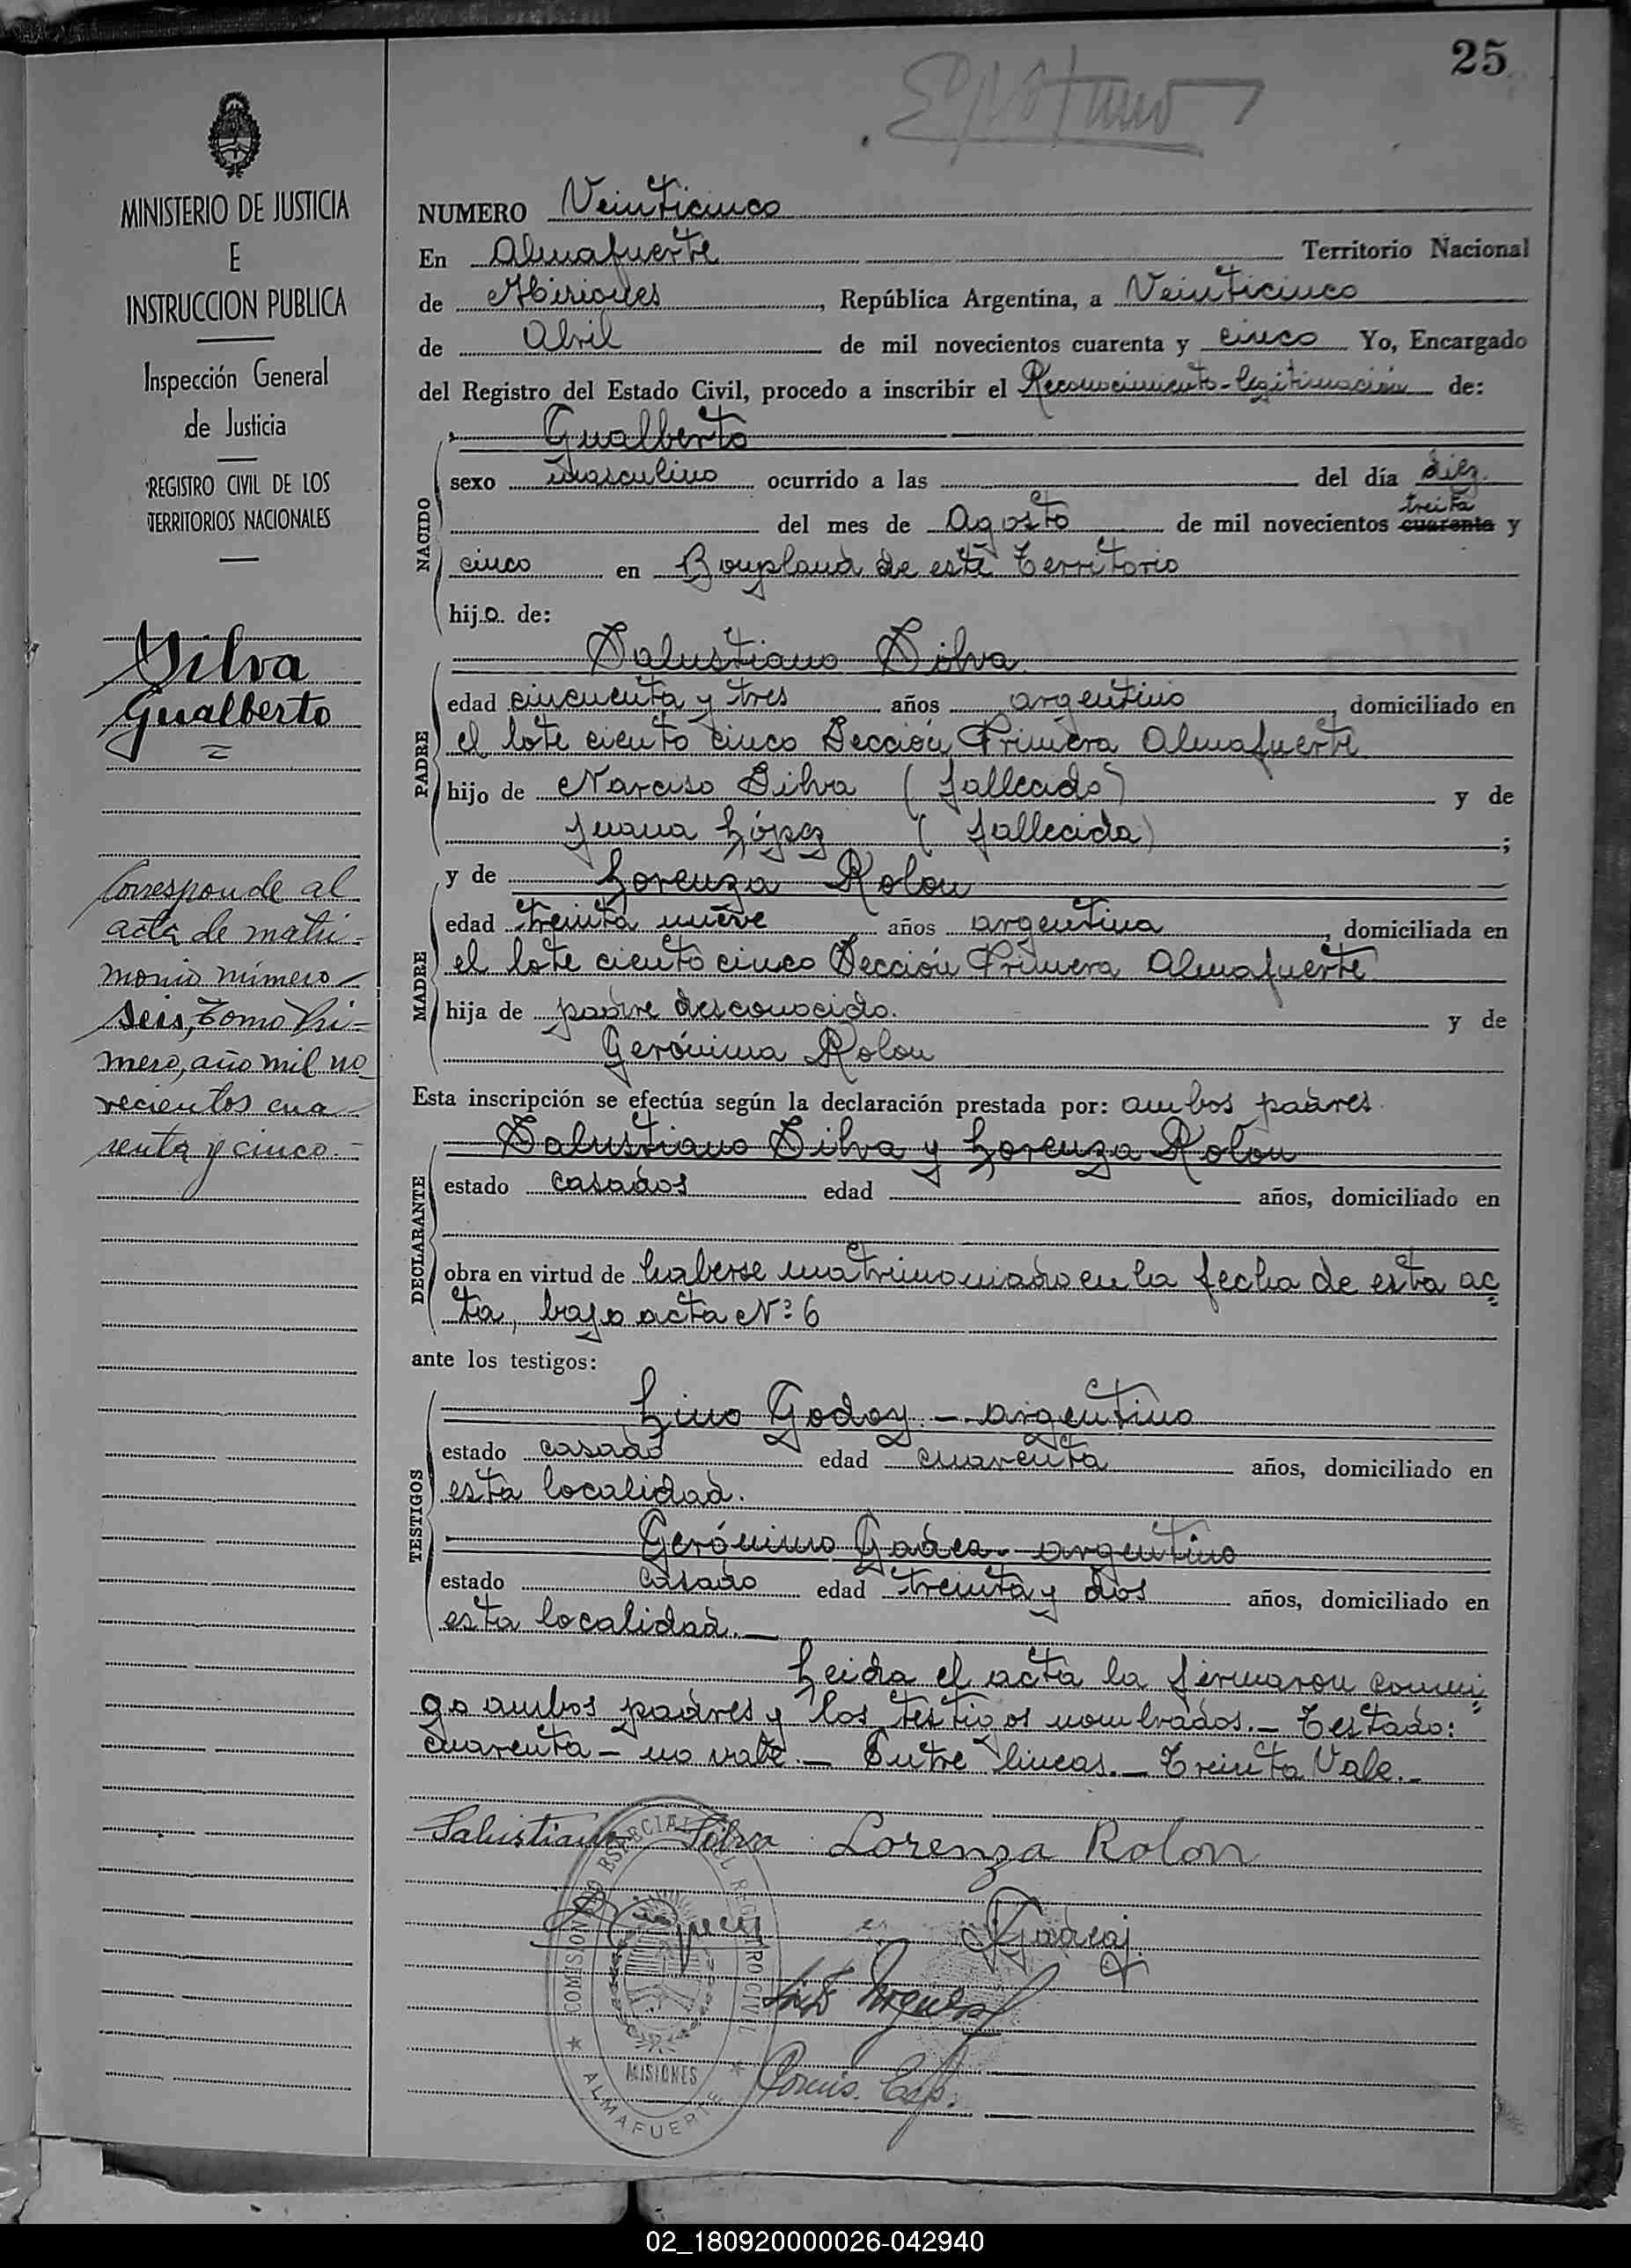 25
MINISTERIO DE JUSTICIA
E
INSTRUCCION PUBLICA
Inspección General
de Justicia
REGISTRO CIVIL DE LOS
TERRITORIOS NACIONALES
Silva
Gualberto
Corresponde al
acta de matri-
monio número
seis, Tomo Pri-
mero, año mil no
vecientos cua
renta y cinco.-
NUMERO Veinticinco
En Almafuerte Territorio Nacional
de Misiones, República Argentina, a Veinticinco
de Abril de mil novecientos cuarenta y cinco Yo, Encargado
del Registro del Estado Civil, procedo a inscribir el Reconocimiento-legitimación de:
Gualberto
NACIDO
sexo masculino ocurrido a las del día diez.
treita
del mes de Agosto de mil novecientos cuarenta y
cinco en Bonpland de este Territorio
hijo de:
Salustiano Silva
PADRE
edad cincuenta y tres años argentino, domiciliado en
el lote ciento cinco Sección Primera Almafuerte
hijo de Narciso Silva (fallecido) y de
Juana López (fallecida);
y de Lorenza Rolon
MADRE
edad treinta nueve años argentina, domiciliada en
el lote ciento cinco Sección Primera Almafuerte
hija de padre desconocido. y de
Gerónima Rolon
Esta inscripción se efectúa según la declaración prestada por: ambos padres
Salustiano Silva y Lorenza Rolon
DECLARANTE
estado casados edad años, domiciliado en
obra en virtud de haberse matrimoniado en la fecha de esta ac
ta, bajo acta Nº 6
ante los testigos:
TESTIGOS
Lino Godoy.- argentino
estado casado edad cuarenta años, domiciliado en
esta localidad.
Gerónimo Gadea.- argentino
estado casado edad treinta y dos años, domiciliado en
esta localidad.—
Leida el acta la firmaron conmi
go ambos padres y los testigos nombrados.— Testado:
cuarenta - no vale.— Entre lineas.— Treinta Vale.-
Salustiano Silva Lorenza Rolon
COMISIONADO ESPECIAL DEL REGISTRO CIVIL
MISIONES
ALMAFUERTE
Comis. Esp.
02_180920000026-042940